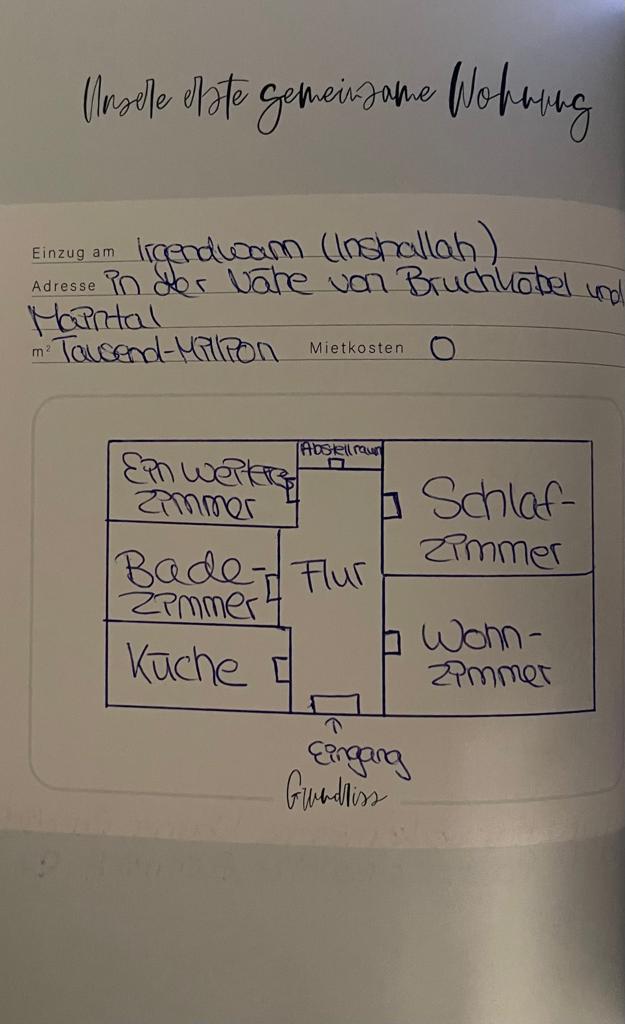 Unsere erste gemeinsame Wohnung
Einzug am Irgendwann (Inshallah)
Adresse in der Nähe von Bruchköbel und
Maintal
m² Tausend-Million Mietkosten 0
Abstellraum
Ein weiteres
zimmer
Schlaf-
zimmer
Bade-
zimmer
Flur
Küche
Wohn-
zimmer
Eingang
Grundriss